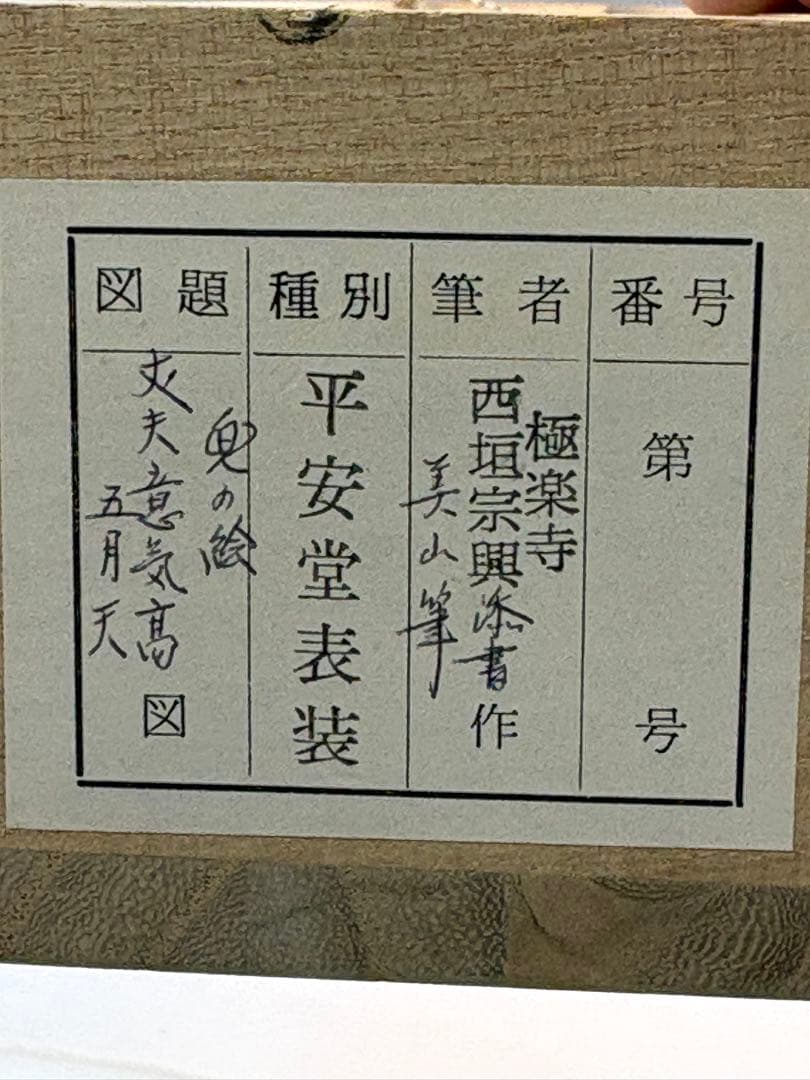 番号
第 号
筆者
極楽寺
西垣宗興添書作
美山筆
種別
平安堂表装
図題
兜の絵
丈夫意気高
五月天
図